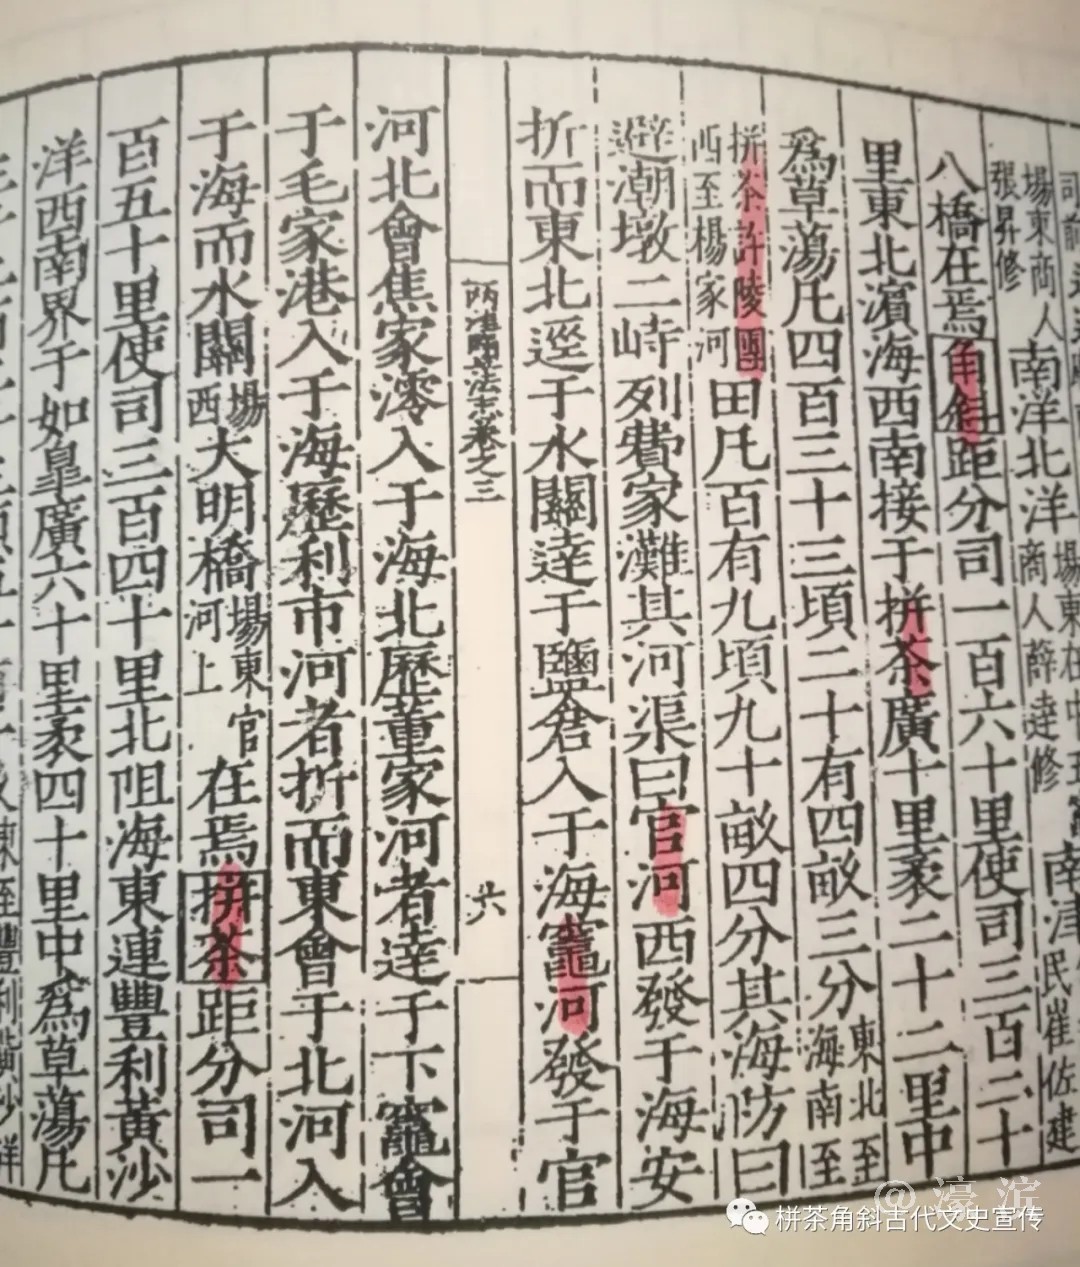 司前
場東商人
張昇修
南洋北洋
場東在中
商人薛逵修
南津
民崔佐建
八橋在焉角斜距分司一百六十里使司三百二十
里東北濵海西南接于拼茶廣十里袤二十二里中
爲草蕩凡四百三十三頃二十有四畝三分
東北至
海南至
拼茶許陵團
西至楊家河
田凡百有九頃九十畝四分其海防曰
避潮墩二峙列費家灘其河渠曰官河西發于海安
折而東北逕于水關逹于鹽倉入于海竈河發于官
兩淮鹽法志卷之三
六
河北會焦家澪入于海北歷董家河者逹于下竈會
于毛家港入于海歷利市河者折而東會于北河入
于海而水關
場
西
大明橋
場東
河上
官
在焉拼茶距分司一
百五十里使司三百四十里北阻海東連豐利黃沙
洋西南界于如皐廣六十里袤四十里中爲草蕩凡
東至豐利
@濠滨
栟茶角斜古代文史宣传